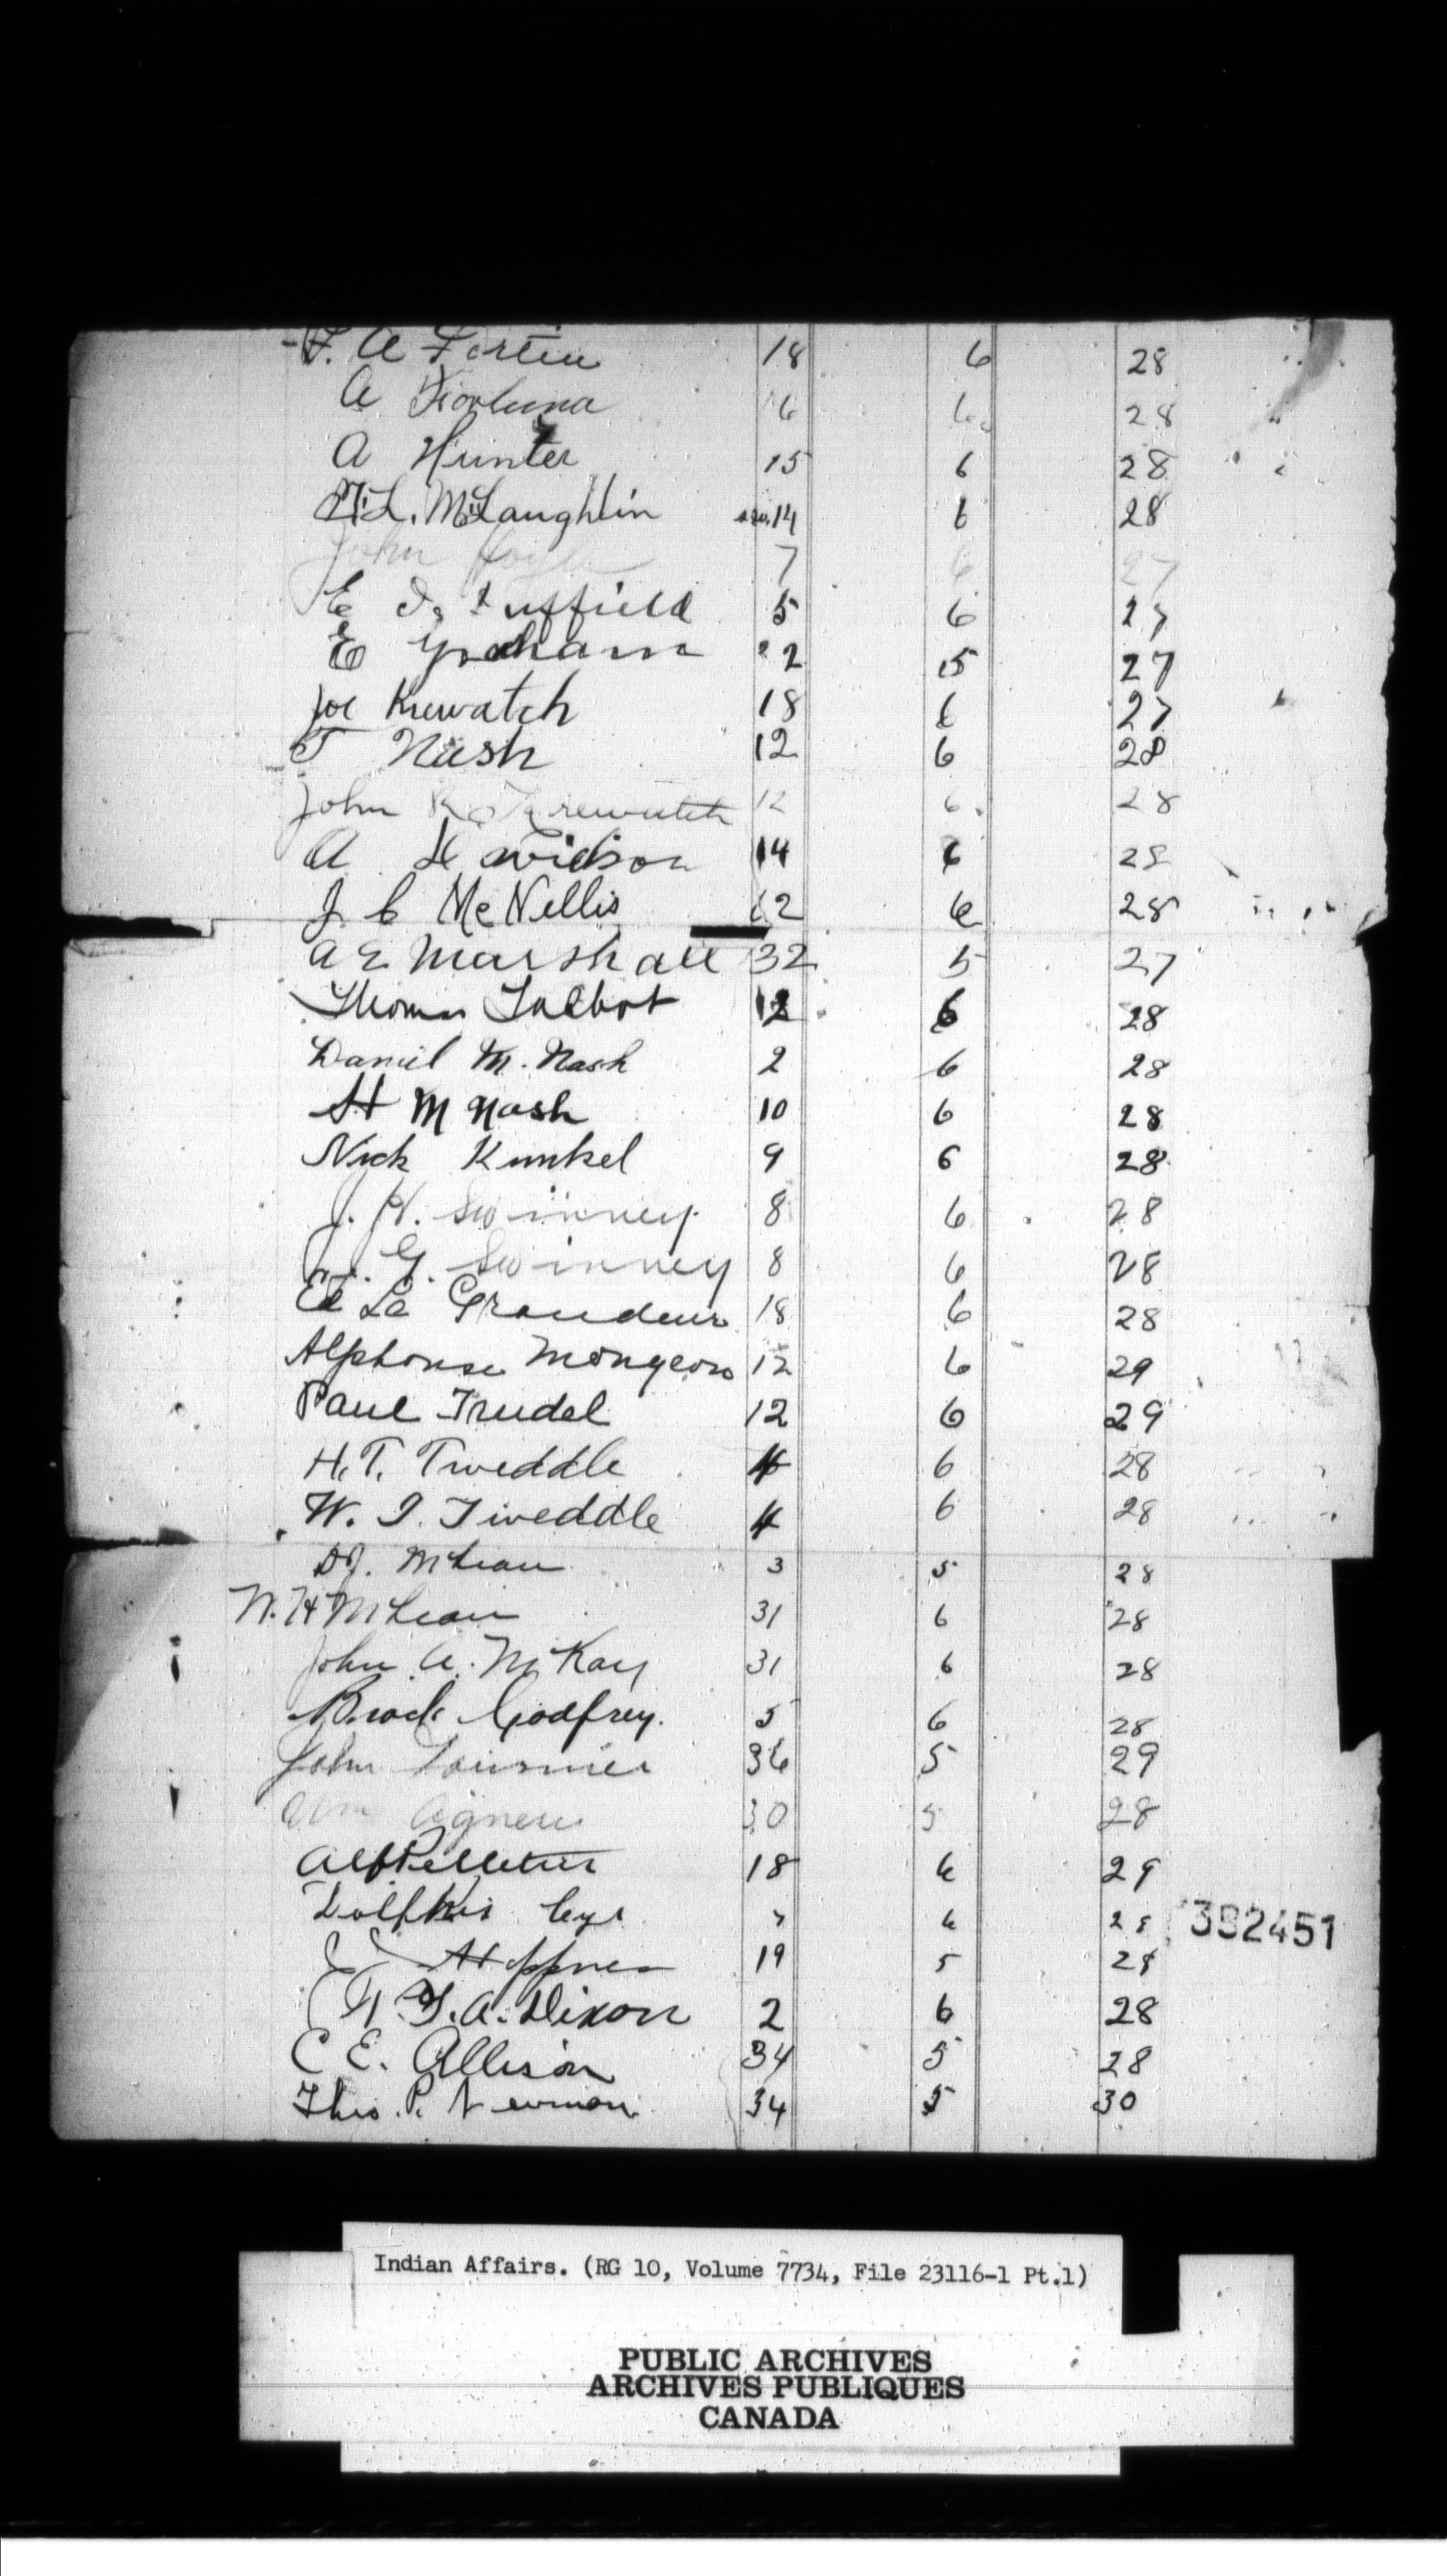 F. A Fortin 18 6 28
A 6 6 28
A Hunter 15 6 28
McLaughlin 14 6 28
John 7 6 27
E Duffield 5 6 27
E Graham 22 5 27
Joe Krewatch 18 6 27
T Nash 12 6 28
John R Krewatch 12 6 28
A Davidson 14 6 28
J C McNellis 12 6 28
A E Marshall 32 5 27
Thomas Talbot 12 6 28
Daniel M. Nash 2 6 28
H M Nash 10 6 28
Nick Kunkel 9 6 28
J. H. Swinney 8 6 28
J. G. Swinney 8 6 28
Ed La Grandeur 18 6 28
Alphonse Mongeon 12 6 29
Paul Trudel 12 6 29
H. T. Tweddle 4 6 28
W. J. Tweddle 4 6 28
D J. McLean 3 5 28
W. H McLean 31 6 28
John A. McKay 31 6 28
Brock Godfrey. 5 6 28
John Fournier 36 5 29
Wm Agnew 30 5 28
Alf Pelletier 18 6 29
Dolphis Cyr 7 6 28
392451
Heppner 19 5 28
A. Dixon 2 6 28
C E. Allison 34 5 28
Thos. P. Newman 34 5 30
Indian Affairs. (RG 10, Volume 7734, File 23116-1 Pt.1)
PUBLIC ARCHIVES
ARCHIVES PUBLIQUES
CANADA